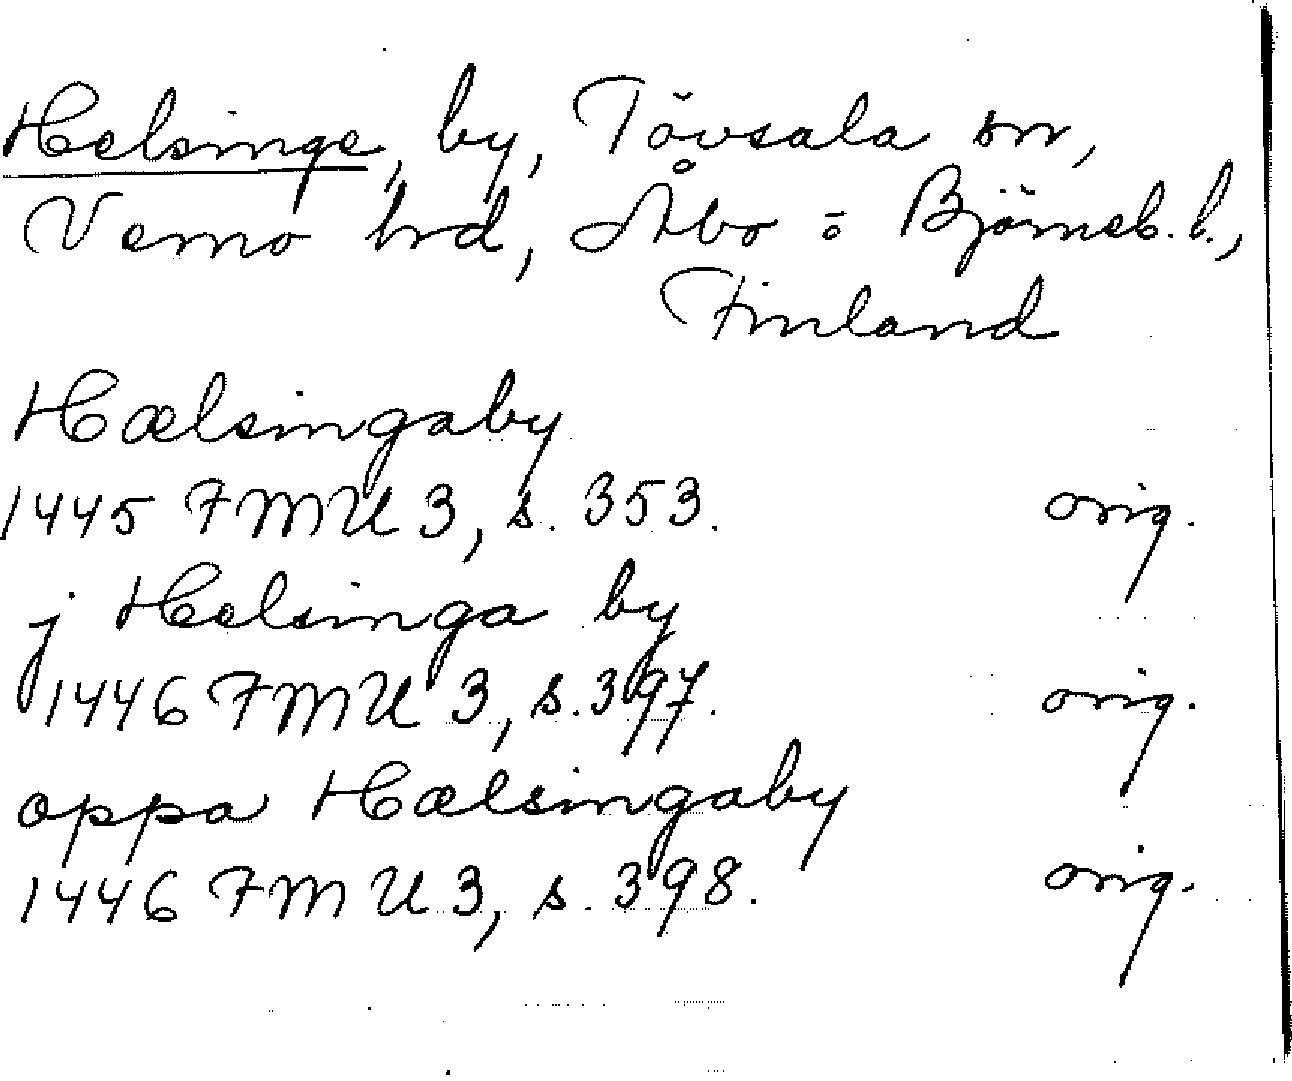 Helsinge, by, Tövsala sn,
Vemo hrd, Åbo o Björneb. l.,
Finland
Hælsingaby
1445 FMU 3, s. 353. orig.
j Helsinga by
1446 FMU 3, s. 397. orig.
oppa Hælsingaby
1446 FMU 3, s. 398. orig.